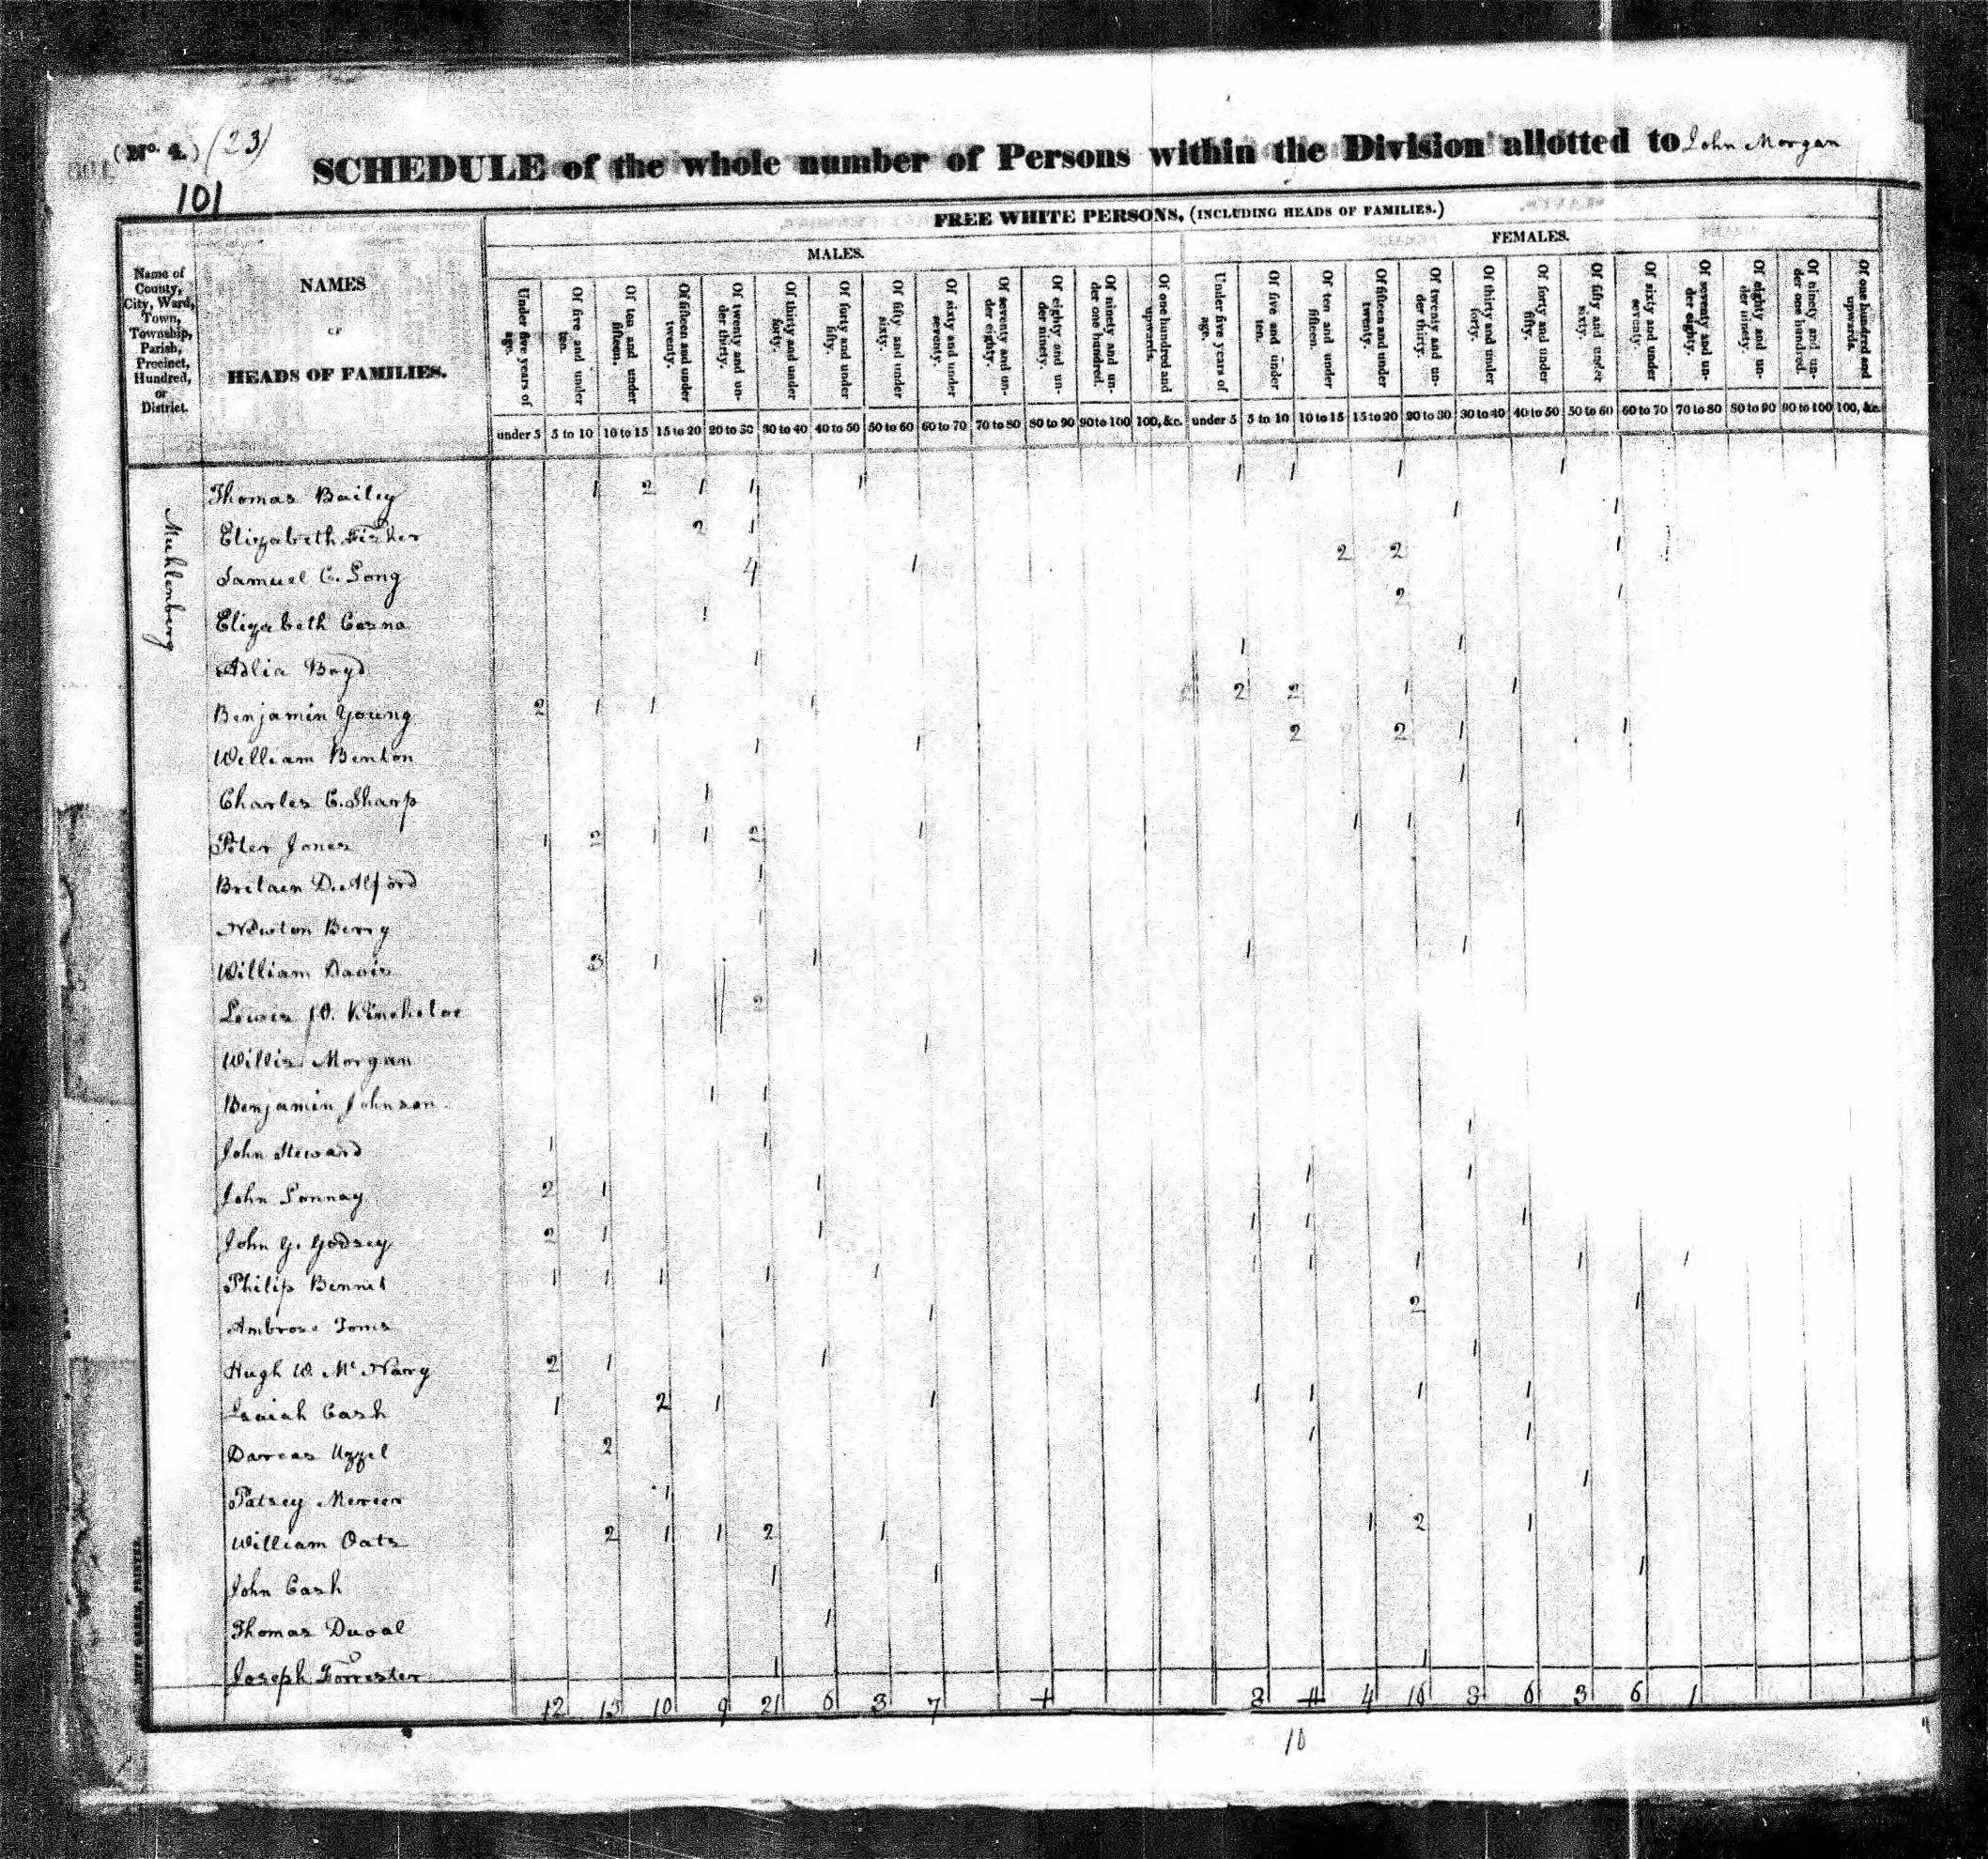 (No. 4.) (23)
SCHEDULE of the whole number of Persons within the Division allotted to John Morgan
101
FREE WHITE PERSONS, (INCLUDING HEADS OF FAMILIES.)
MALES. FEMALES.
Name of County, City, Ward, Town, Township, Parish, Precinct, Hundred, or District.
NAMES
OF
HEADS OF FAMILIES.
Under five years of age.
Of five and under ten.
Of ten and under fifteen.
Of fifteen and under twenty.
Of twenty and under thirty.
Of thirty and under forty.
Of forty and under fifty.
Of fifty and under sixty.
Of sixty and under seventy.
Of seventy and under eighty.
Of eighty and under ninety.
Of ninety and under one hundred.
Of one hundred and upwards.
Under five years of age.
Of five and under ten.
Of ten and under fifteen.
Of fifteen and under twenty.
Of twenty and under thirty.
Of thirty and under forty.
Of forty and under fifty.
Of fifty and under sixty.
Of sixty and under seventy.
Of seventy and under eighty.
Of eighty and under ninety.
Of ninety and under one hundred.
Of one hundred and upwards.
under 5 5 to 10 10 to 15 15 to 20 20 to 30 30 to 40 40 to 50 50 to 60 60 to 70 70 to 80 80 to 90 90 to 100 100, &c. under 5 5 to 10 10 to 15 15 to 20 20 to 30 30 to 40 40 to 50 50 to 60 60 to 70 70 to 80 80 to 90 90 to 100 100, &c.
Muhlenberg
Thomas Bailey 1 2 1 1 1 1 1 1 1
Elizabeth Fisher 2 1 1 1
Samuel C. Long 4 1 2 2 1 1
Elizabeth 1 2 1
Adlia Boyd 1 1 1
Benjamin Young 2 1 1 1 2 2 1 1
William Benton 1 1 2 2 1 1
Charles C. Sharp 1 1
Peter Jones 1 2 1 1 2 1 1 1 1
Britain D. Alford 1
Newton Berry 1
William Davis 3 1 1 1 1
Lewis 1 2
Willis Morgan 1
Benjamin Johnson 1 1
John Steward 1 1 1
John 2 1 1 1 1
John G. Godsey 2 1 1 1 1 1
Philip Bennit 1 1 1 1 1 1 1 1 1 1
Ambrose Toms 1 2 1
Hugh W. McNary 2 1 1 1
Isaiah Cash 1 2 1 1 1 1 1 1
Darcas Uzzel 2 1 1
Patsey Mercer 1 1
William Oats 2 1 1 2 1 1 2 1
John Cash 1 1 1
Thomas Duval 1
Joseph Forrester 1 1
12 13 10 9 21 6 3 7 8 4 16 8 6 3 6 1
10